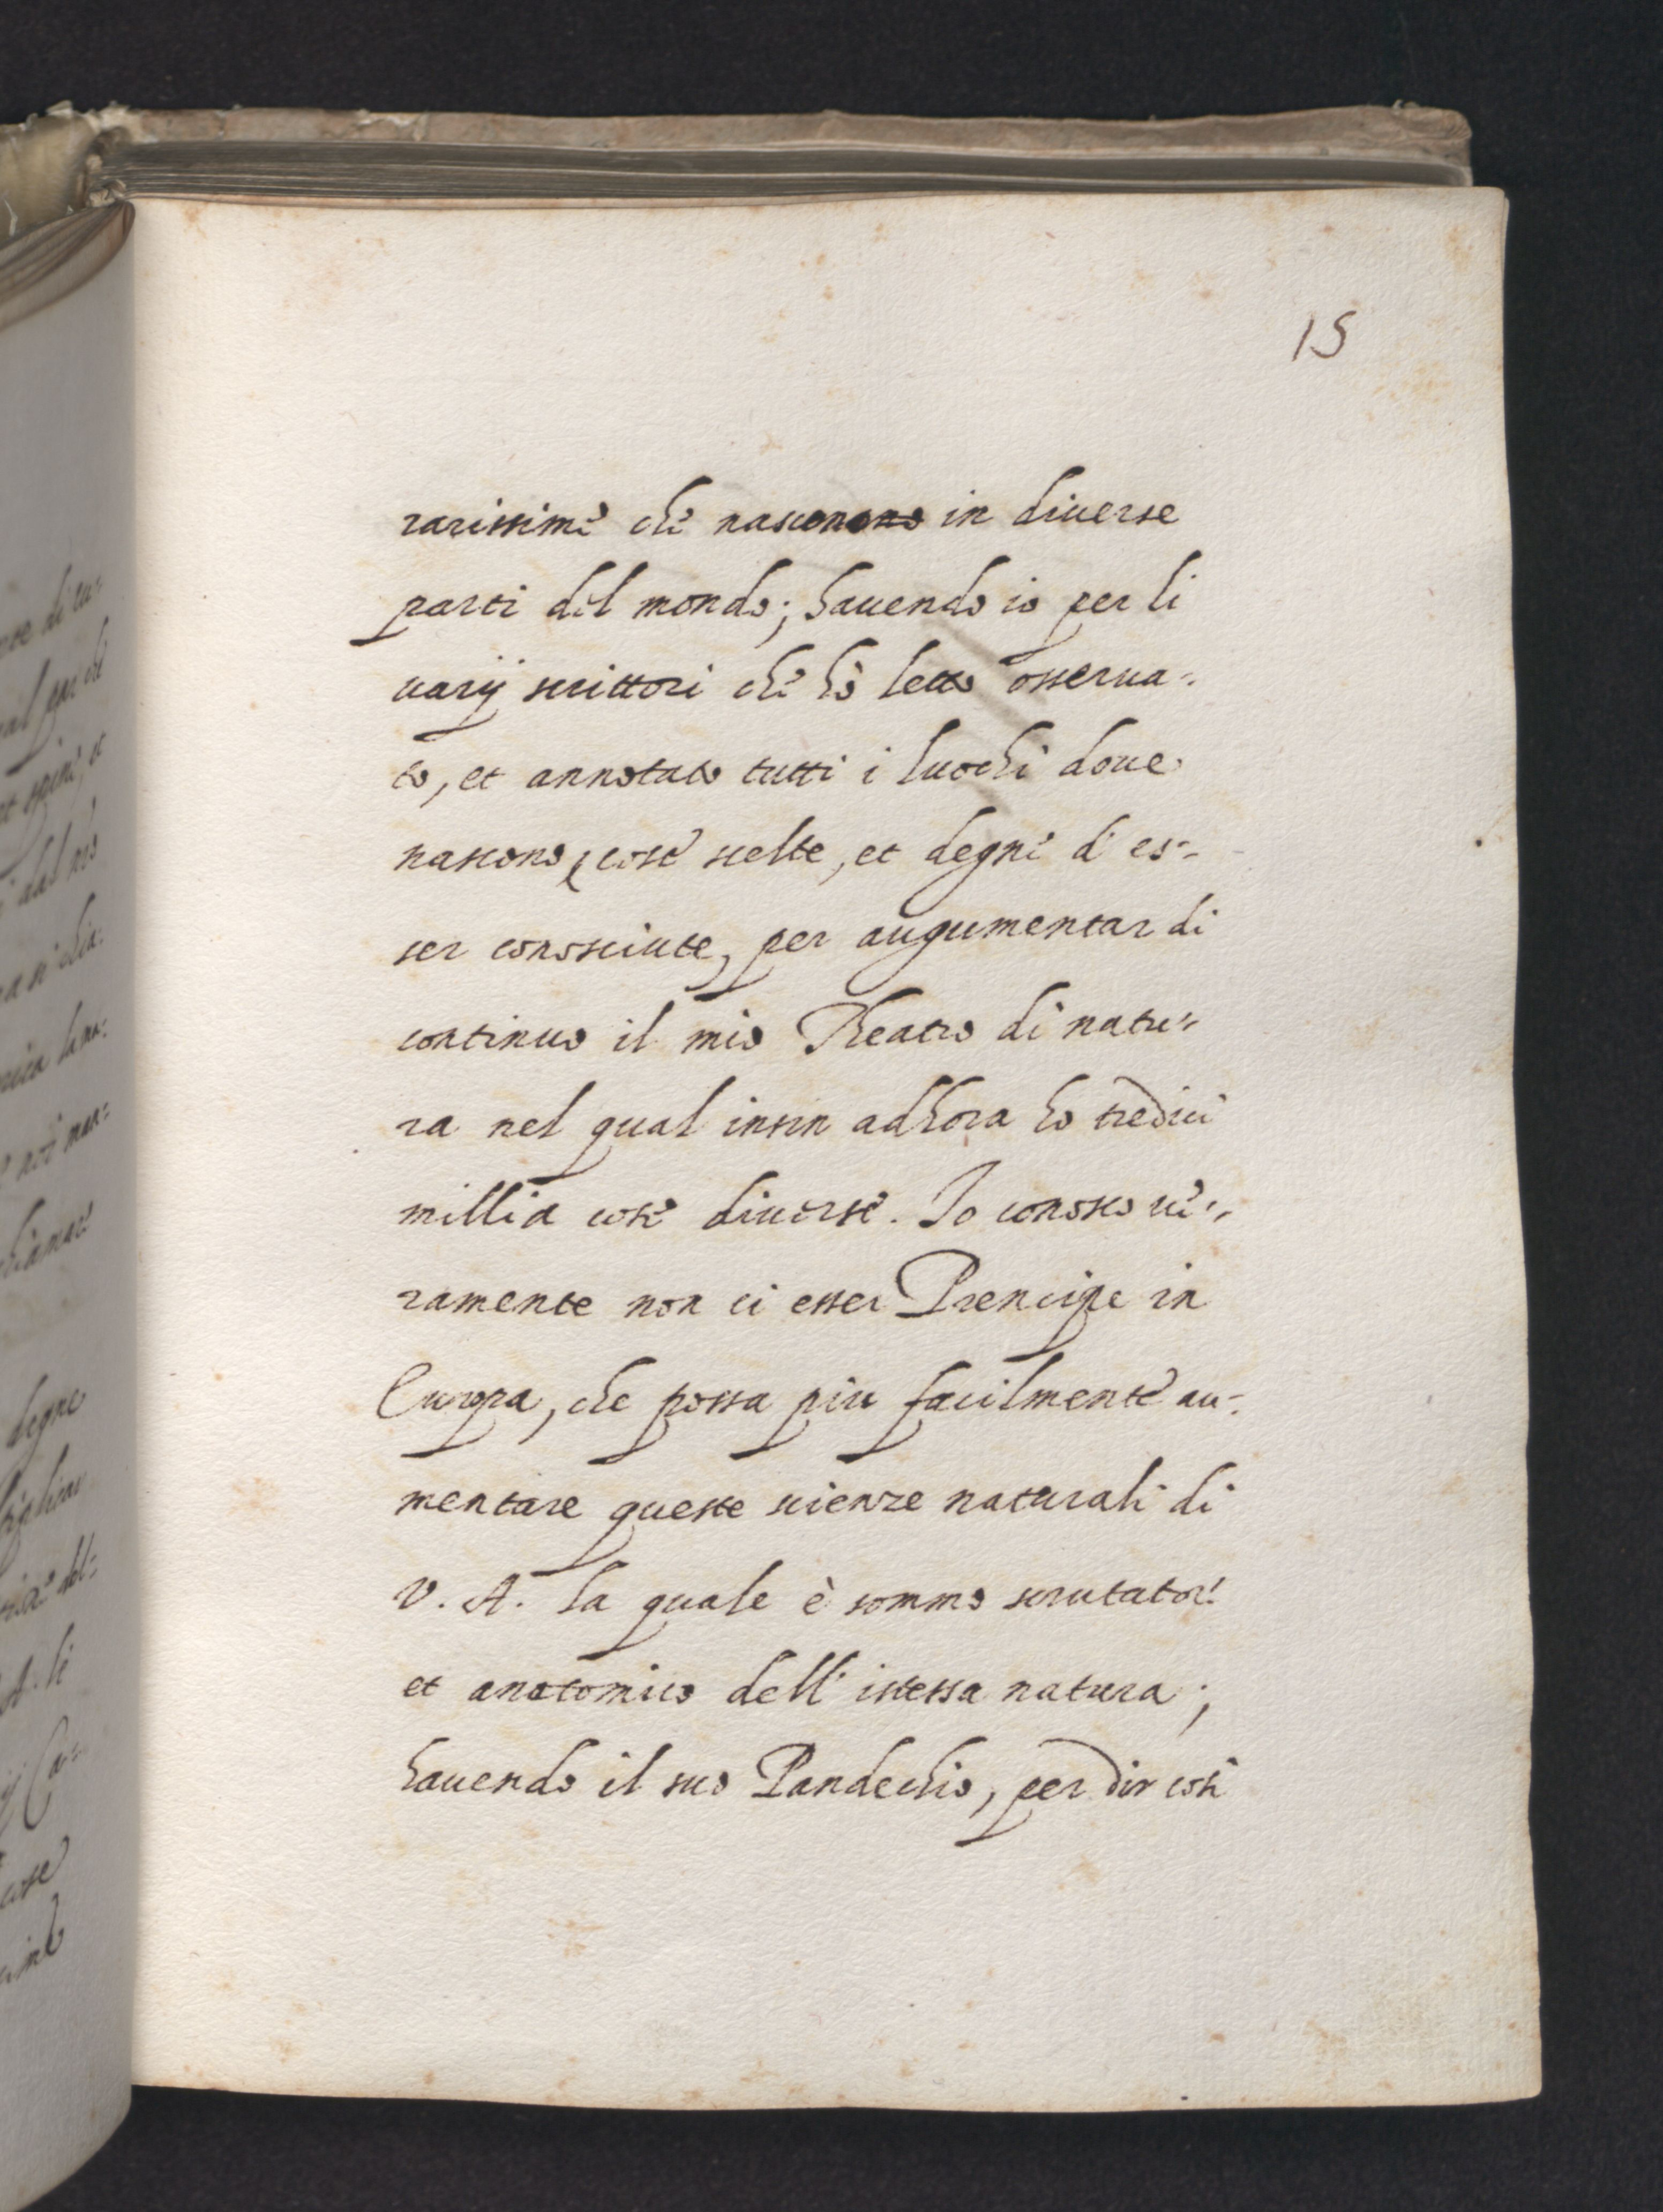 15
rarissime che nascono in diuerse
parti del mondo; hauendo io per li
uarij scrittori che hò letto osserua-
to, et annotato tutti i luochi doue
nascono, cose scelte, et degne d'es-
ser conosciute, per augumentar di
continuo il mio Theatro di natu-
ra nel qual insin adhora ho tredici
millia cose diuerse. Io conosco ue-
ramente non ci esser Prencipe in
Europa, che possa piu facilmente au-
mentare queste scienze naturali di
V. A. la quale è sommo scrutator
et anatomico dell'istessa natura;
hauendo il suo Pandechio, per dir cosi